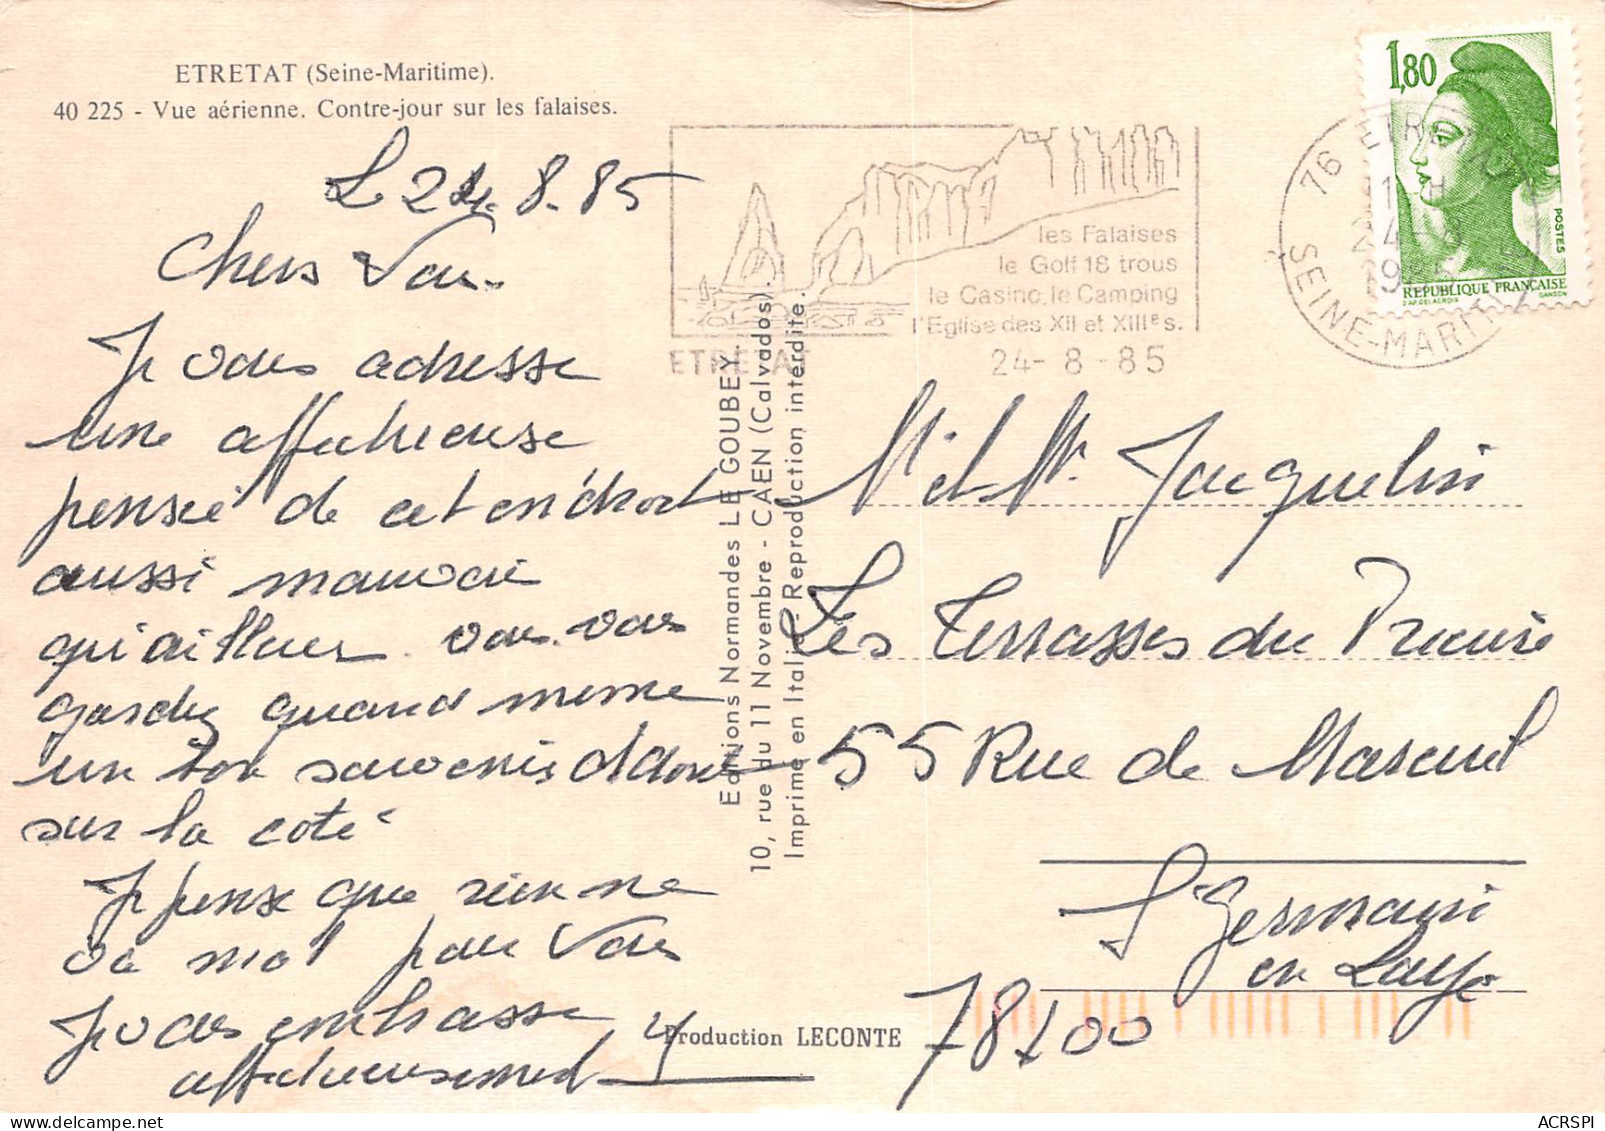 ETRETAT (Seine-Maritime).
40 225 - Vue aérienne. Contre-jour sur les falaises.
L 24.8.85
Chers Vous.
Je vous adresse
une affectueuse
pensée de cet endroit
aussi mauvais
qu'ailleurs. vous
gardez quand meme
un bon souvenir
sur la coté
Je pense que rien ne
va mal pour Vous
Je vous embrasse
affectueusement
Editions Normandes LE GOUBEY.
10, rue du 11 Novembre - CAEN (Calvados).
Imprimé en Italie Reproduction interdite.
Production LECONTE
les Falaises
le Golf 18 trous
le Casino, le Camping
l'Eglise des XII et XIIIes.
ETRETAT
24- 8 -85
76 ETRETAT
24-8
1985
SEINE-MARITIME
1,80
POSTES
REPUBLIQUE FRANCAISE
D'AP. DELACROIX GANDON
M. et Me. Jacquelin
Les Terrasses du Prieuré
55 Rue de Mareuil
St Germain
en Laye
78100
ACRSPI